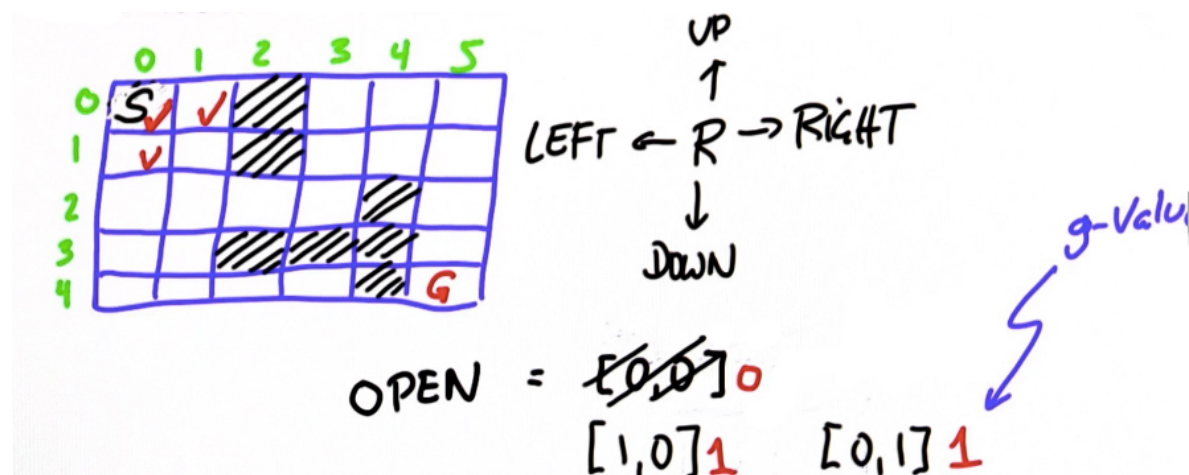 0 1 2 3 4 5
0 S
1
2
3
4 G
UP
LEFT ← R → RIGHT
DOWN
OPEN = [0,0] 0
[1,0] 1 [0,1] 1